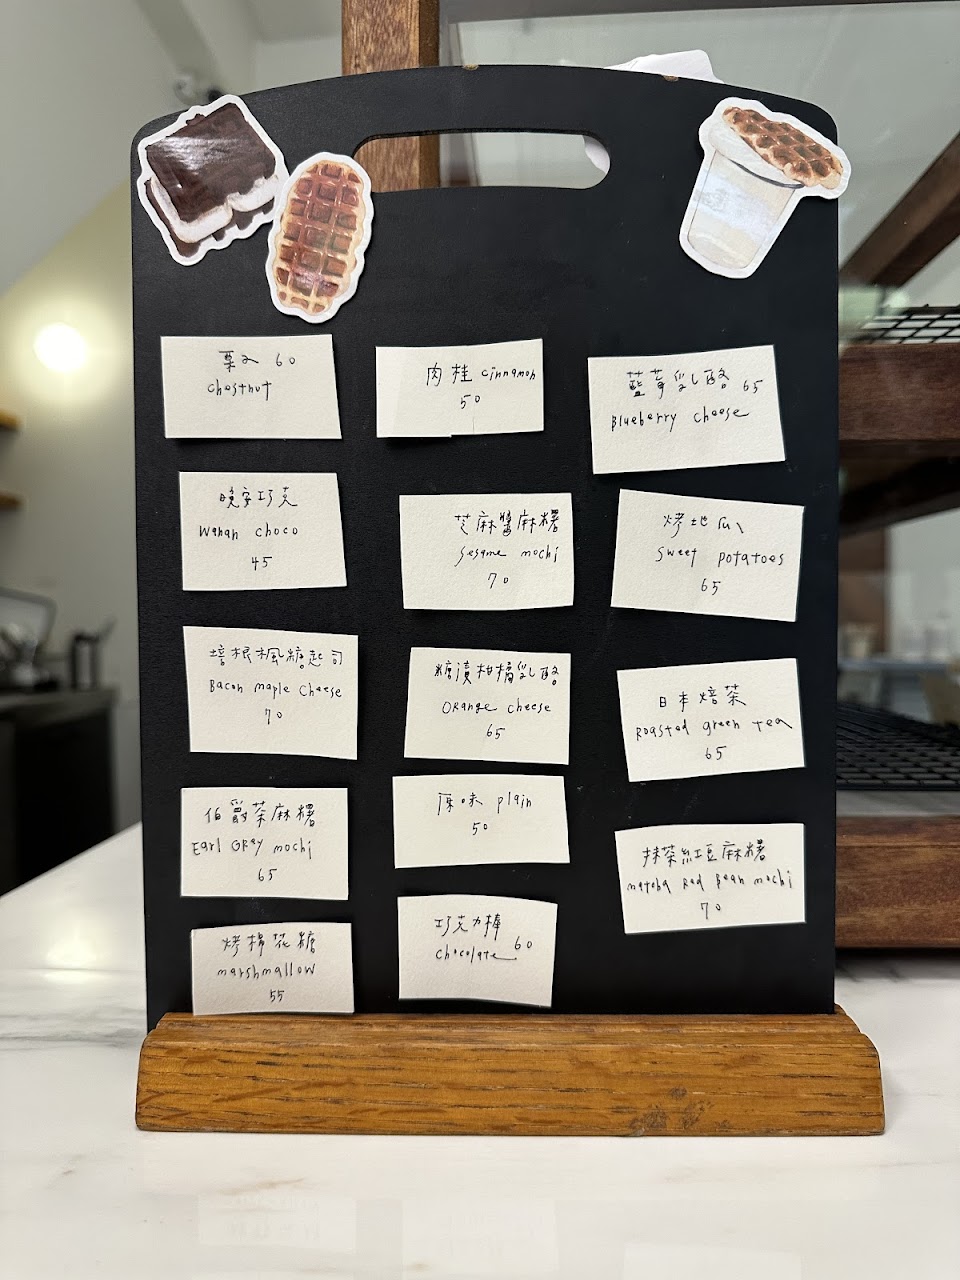 栗子 60
chestnut
晚安巧克
Wanan choco
45
培根楓糖起司
Bacon maple cheese
70
伯爵茶麻糬
Earl GRay mochi
65
烤棉花糖
marshmallow
55
肉桂 cinnamon
50
芝麻醬麻糬
sesame mochi
70
糖漬柑橘乳酪
ORange cheese
65
原味 plain
50
巧克力棒
chocolate 60
藍莓乳酪 65
Blueberry cheese
烤地瓜
sweet potatoes
65
日本焙茶
Roasted green tea
65
抹茶紅豆麻糬
matcha Red Bean mochi
70